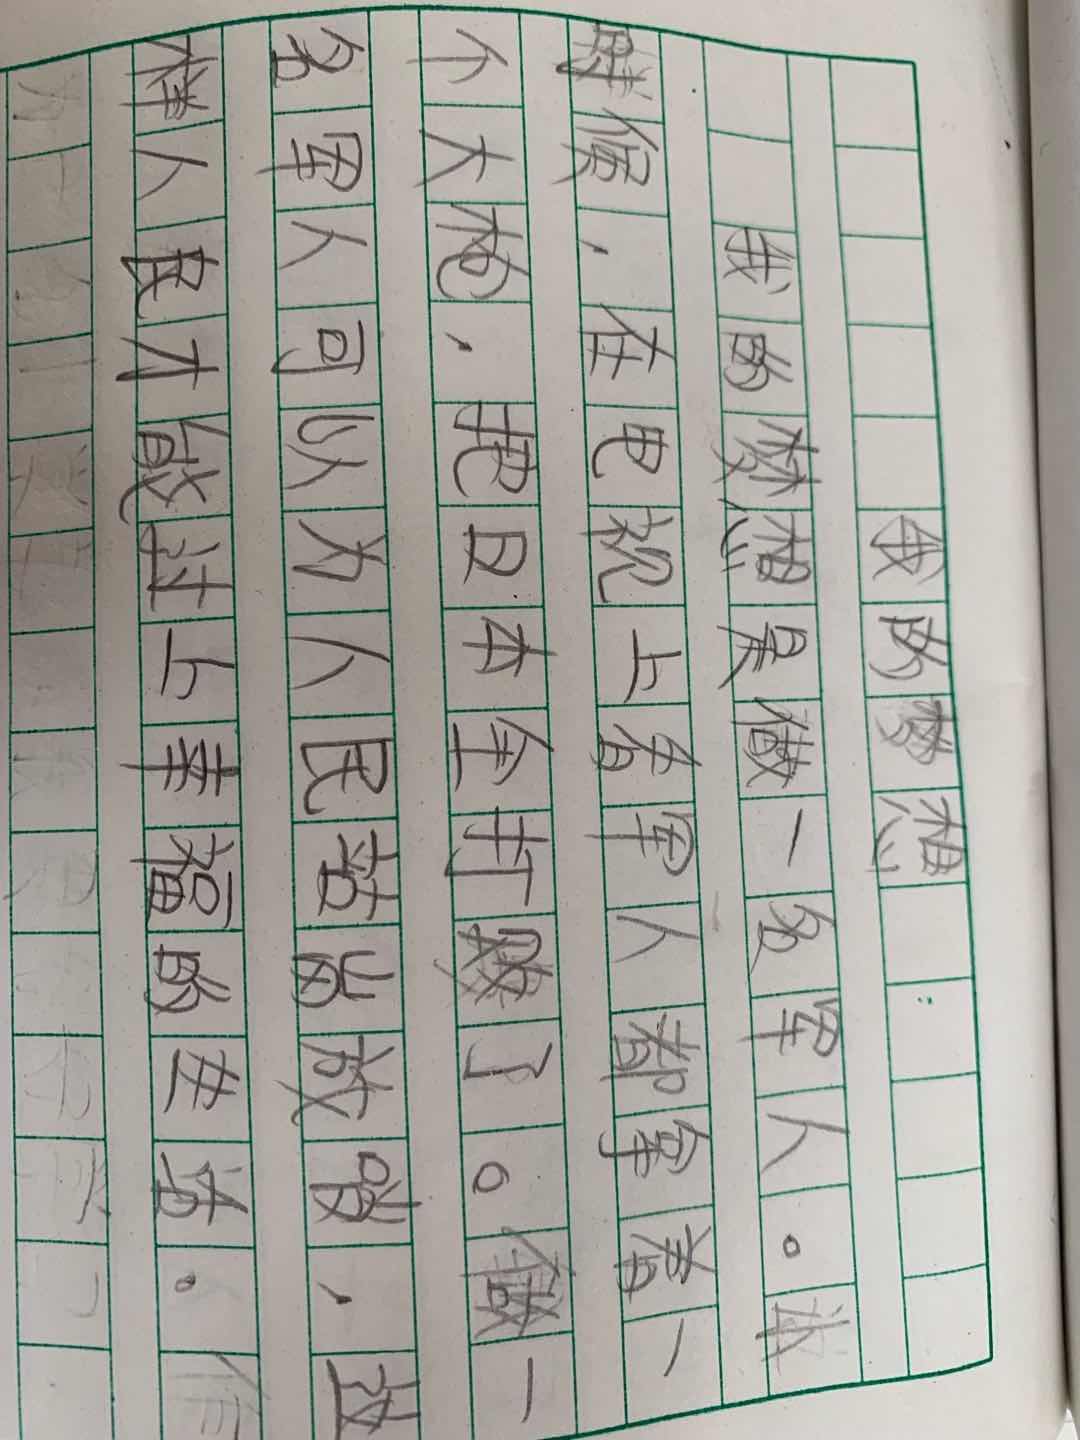 我的梦想
我的梦想是做一名军人。
时候，在电视上看军人都拿着一
个大炮，把日本全打败了。做一
名军人可以为人民站岗放哨，这
样人民才能过上幸福的生活。